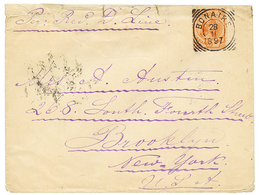 Per Red D. Line
BONAIRE
26
11
1897
Alfred Austin
South Fourth Street
Brooklyn
New-York
U.S.A